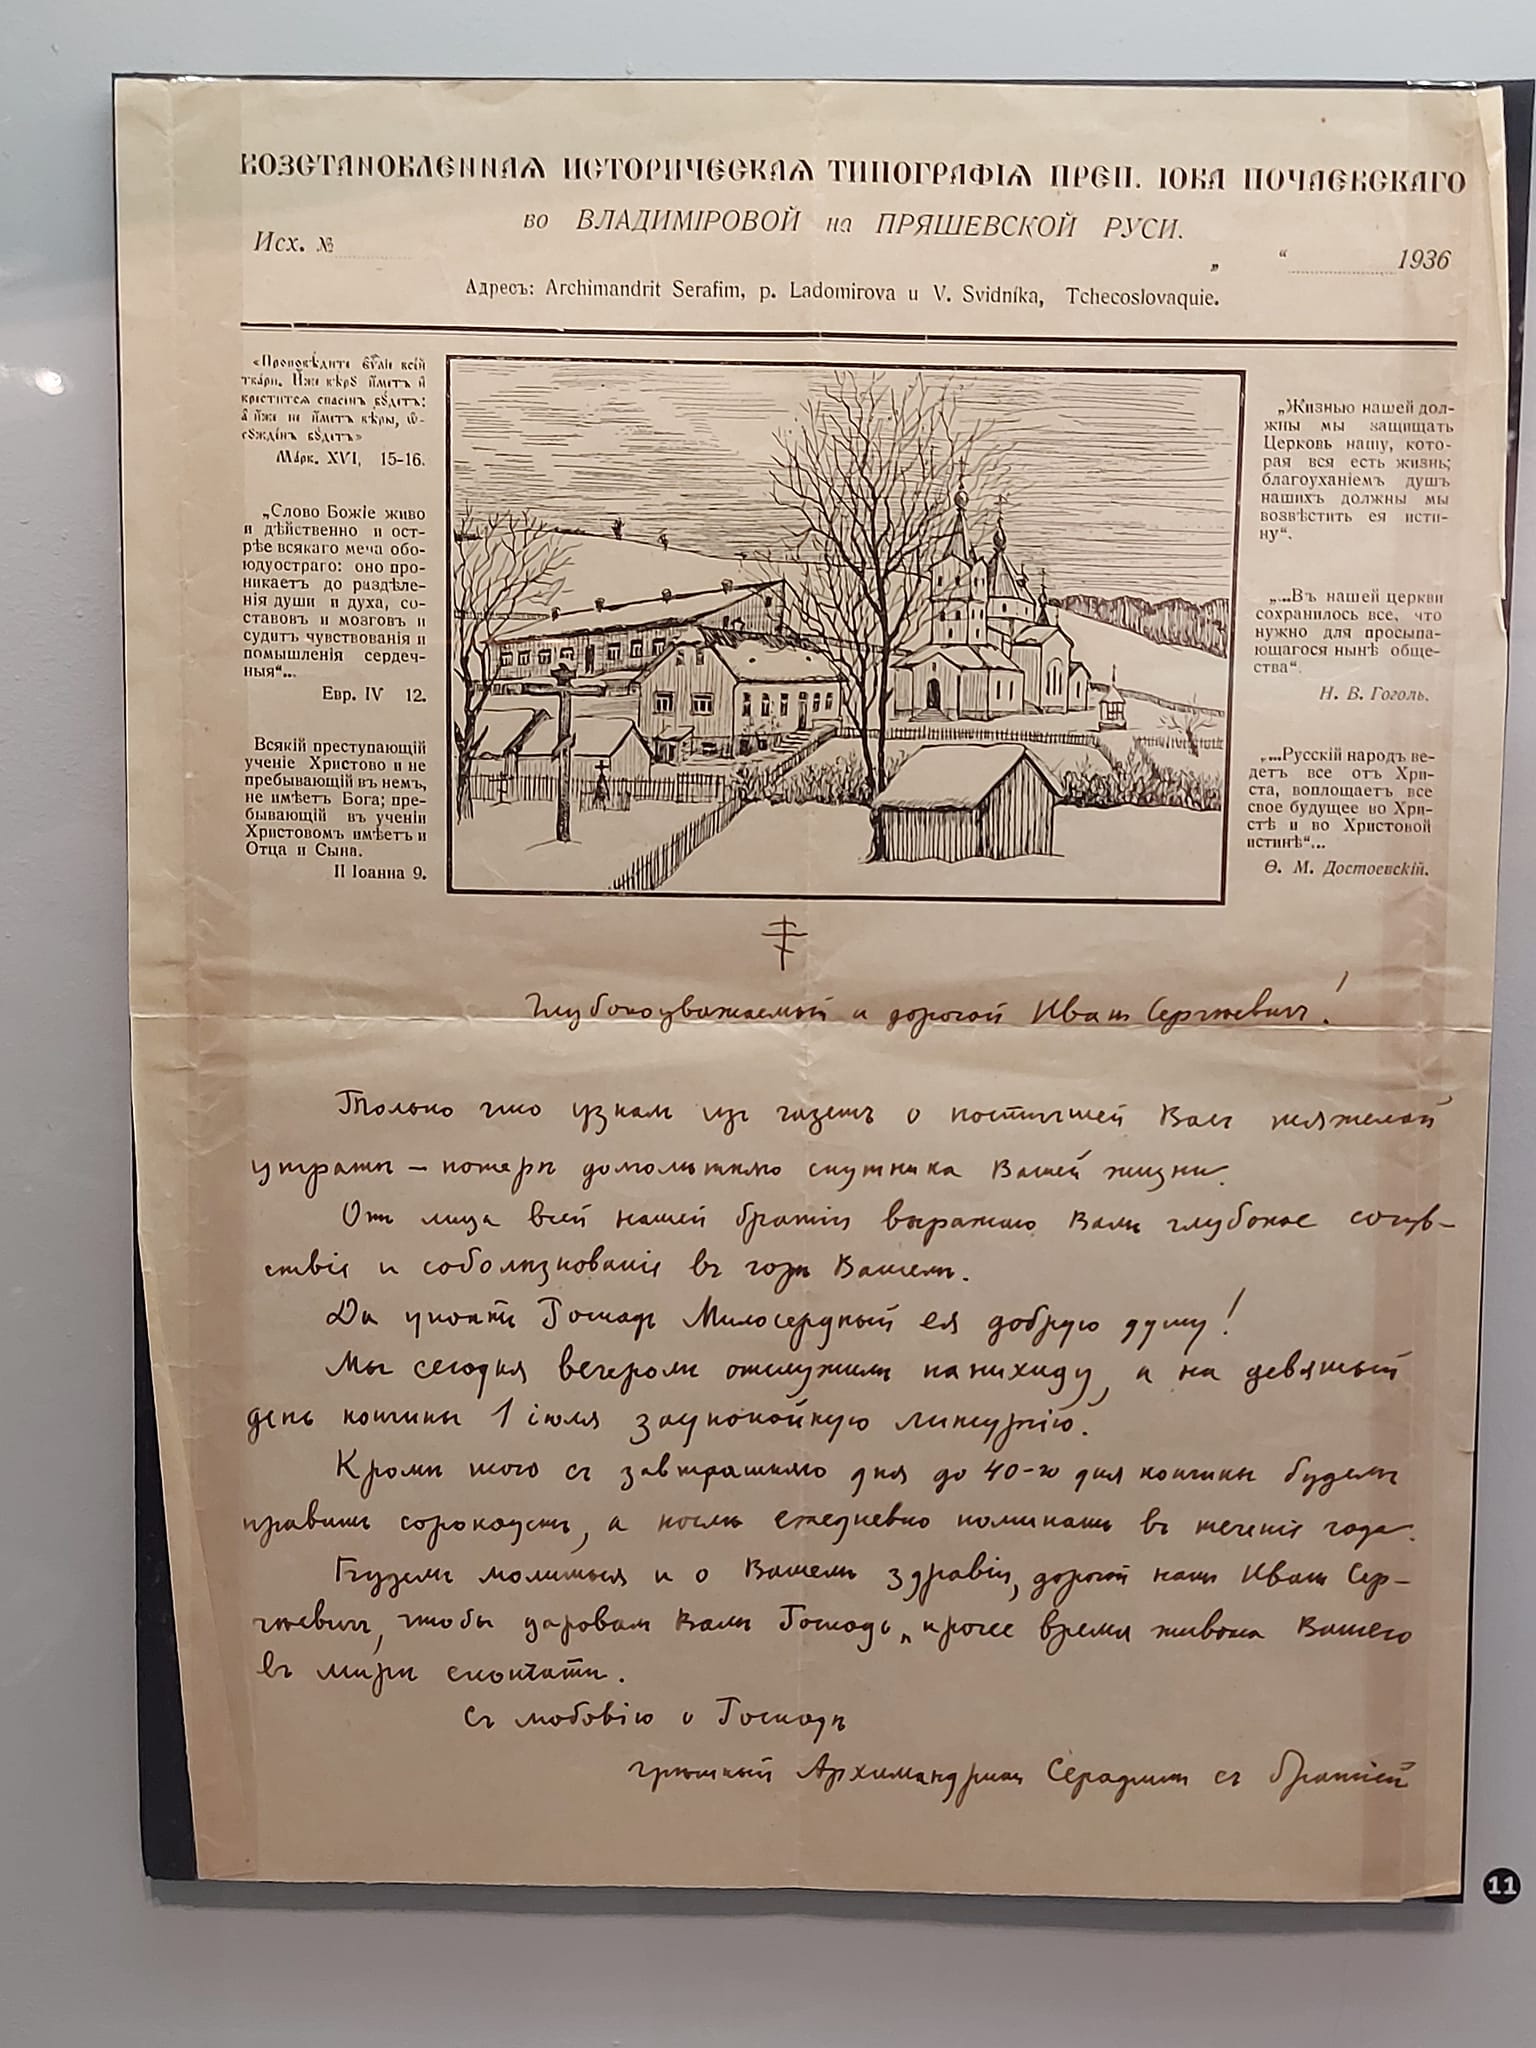 ВОЗСТАНОВЛЕННАЯ ИСТОРИЧЕСКАЯ ТИПОГРАФІЯ ПРЕП. ІОВА ПОЧАЕВСКАГО
во ВЛАДИМІРОВОЙ на ПРЯШЕВСКОЙ РУСИ.
Исх. №
„ “ 1936
Адресъ: Archimandrit Serafim, p. Ladomirova u V. Svidníka, Tchecoslovaquie.
«Проповѣдите ѵ҆лїе всей
тва́ри. И҆́же вѣ́рꙋ и҆́метъ и҆
крести́тсѧ спасе́нъ бꙋ́детъ:
а҆ и҆́же не и҆́метъ вѣ́ры, ѡ҆-
сꙋжде́нъ бꙋ́детъ»
Марк. XVI, 15-16.
„Слово Божіе живо
и дѣйственно и ост-
рѣе всякаго меча обо-
юдуостраго: оно про-
никаетъ до раздѣле-
нія души и духа, со-
ставовъ и мозговъ и
судитъ чувствованія и
помышленія сердеч-
ныя“...
Евр. IV 12.
Всякій преступающій
ученіе Христово и не
пребывающій въ немъ,
не имѣетъ Бога; пре-
бывающій въ ученіи
Христовомъ имѣетъ и
Отца и Сына.
II Іоанна 9.
„Жизнью нашей дол-
жны мы защищать
Церковь нашу, кото-
рая вся есть жизнь;
благоуханіемъ душъ
нашихъ должны мы
возвѣстить ея исти-
ну“.
„...Въ нашей церкви
сохранилось все, что
нужно для просыпа-
ющагося нынѣ обще-
ства“.
Н. В. Гоголь.
„...Русскій народъ ве-
детъ все отъ Хри-
ста, воплощаетъ все
свое будущее во Хри-
стѣ и во Христовой
истинѣ“...
Ѳ. М. Достоевскій.
Глубокоуважаемый и дорогой Иванъ Сергѣевичъ!
Только что узнали изъ газетъ о постигшей Васъ тяжелой
утратѣ – потерѣ долголѣтняго спутника Вашей жизни.
Отъ лица всей нашей братіи выражаю Вамъ глубокое сочув-
ствіе и соболѣзнованіе въ горѣ Вашемъ.
Да упокоитъ Господь Милосердный ея добрую душу!
Мы сегодня вечеромъ отслужили панихиду, а на девятый
день кончины 1 іюля заупокойную литургію.
Кромѣ того съ завтрашняго дня до 40-го дня кончины будемъ
править сорокоустъ, а послѣ ежедневно поминать въ теченіе года.
Будемъ молиться и о Вашемъ здравіи, дорогой нашъ Иванъ Сер-
гѣевичъ, чтобы даровалъ Вамъ Господь „прочее время живота Вашего
въ мирѣ скончати.
Съ любовію о Господѣ
грѣшный Архимандритъ Серафимъ съ братіей
11